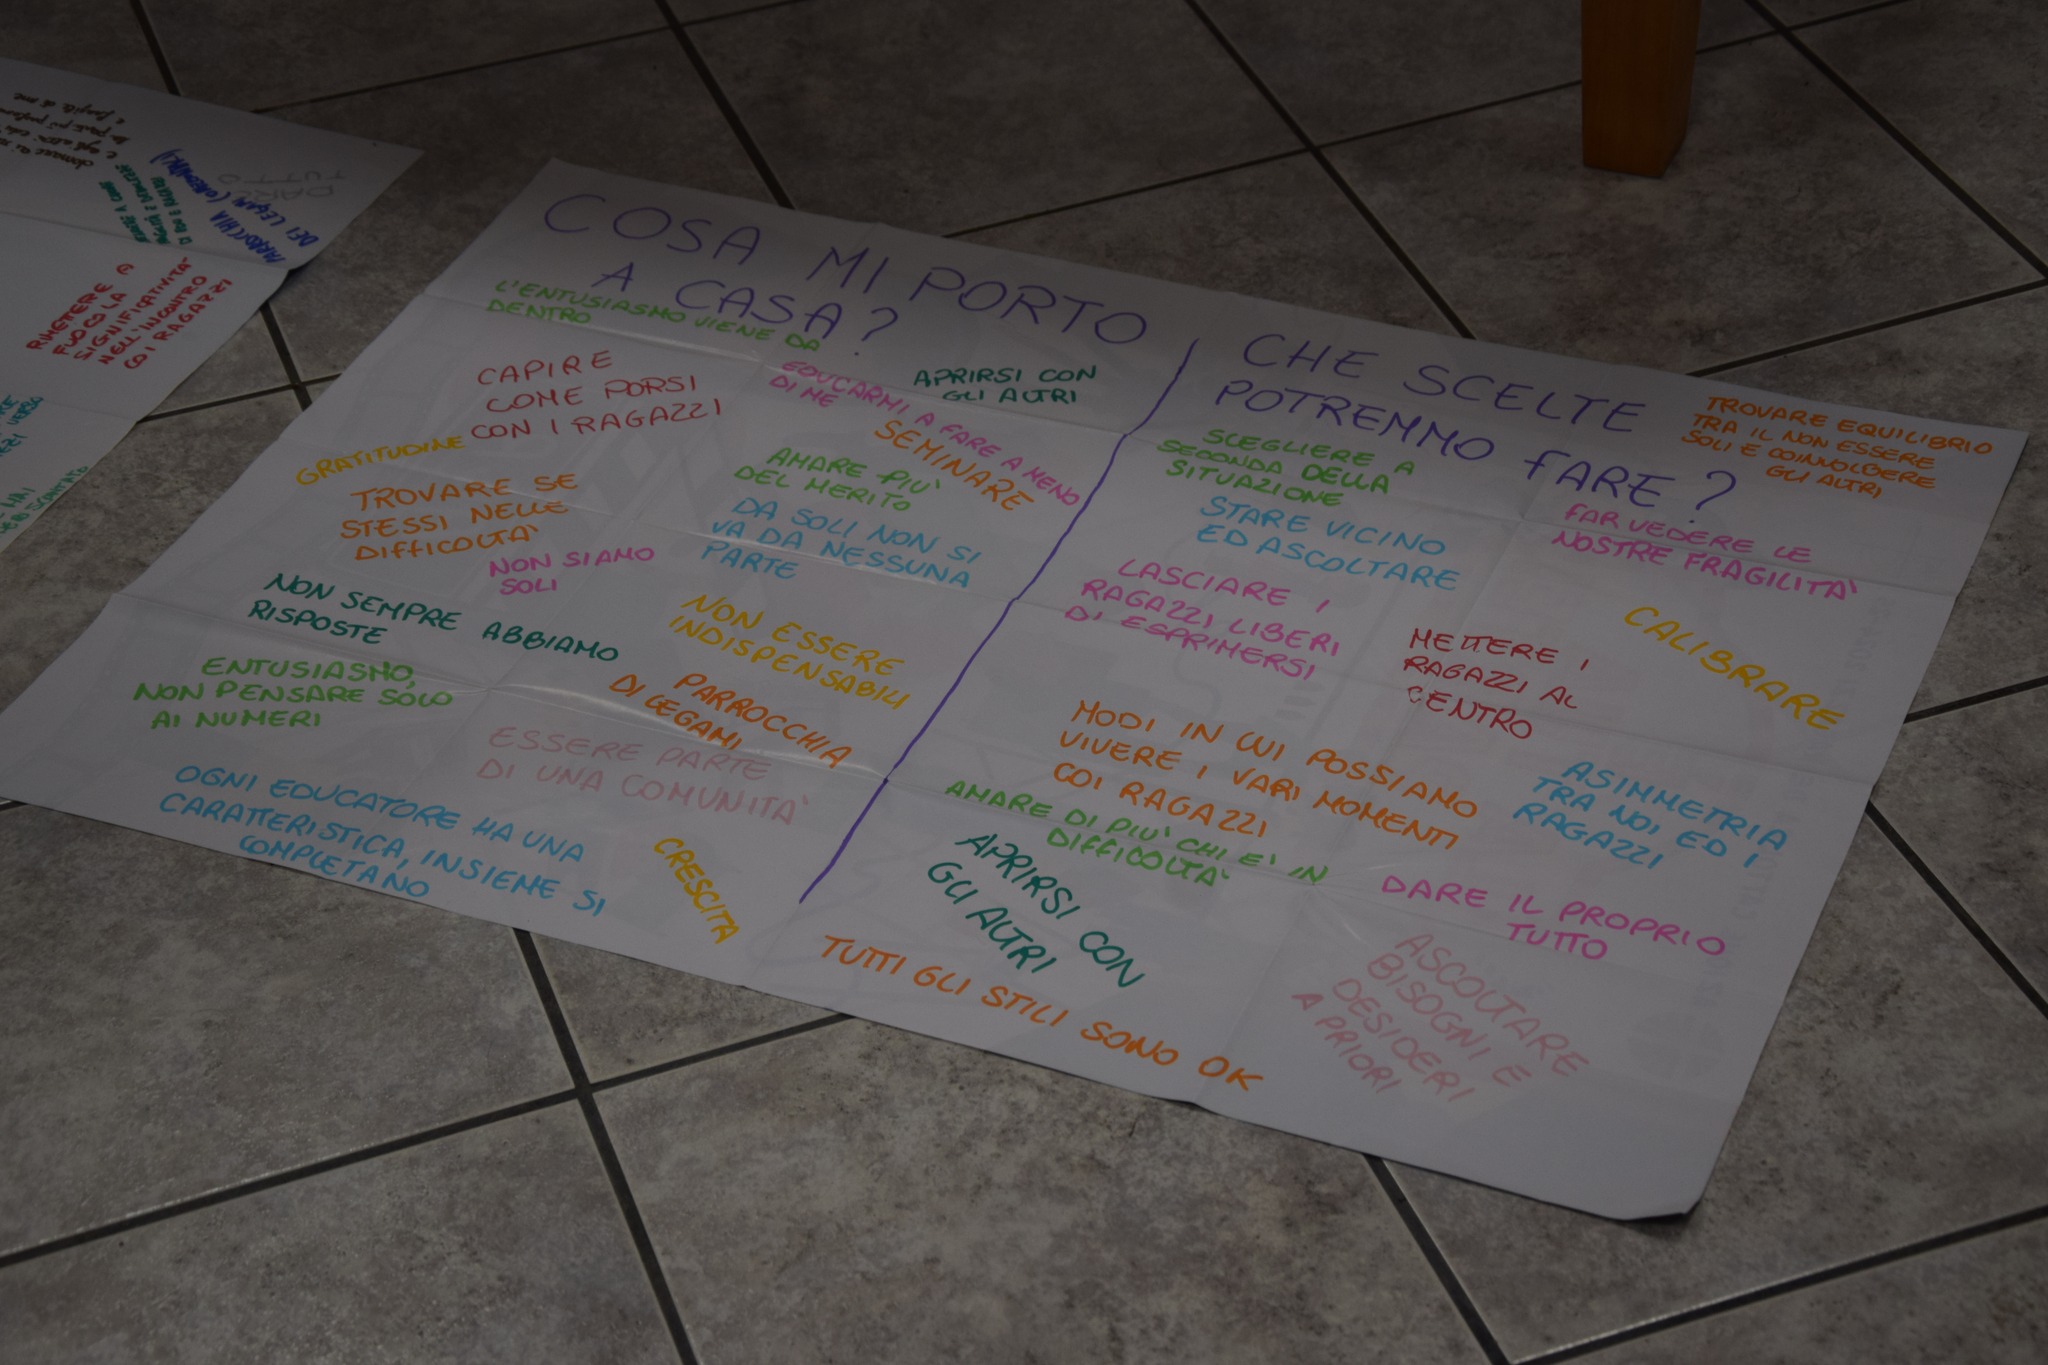 COSA MI PORTO
A CASA?
L'ENTUSIASMO VIENE DA
DENTRO
CAPIRE
COME PORSI
CON I RAGAZZI
EDUCARMI A FARE A MENO
DI ME
APRIRSI CON
GLI ALTRI
SEMINARE
GRATITUDINE
AMARE PIU'
DEL MERITO
TROVARE SE
STESSI NELLE
DIFFICOLTA'
DA SOLI NON SI
VA DA NESSUNA
PARTE
NON SIAMO
SOLI
NON SEMPRE ABBIAMO
RISPOSTE
NON ESSERE
INDISPENSABILI
ENTUSIASMO,
NON PENSARE SOLO
AI NUMERI
PARROCCHIA
DI LEGAMI
ESSERE PARTE
DI UNA COMUNITA'
OGNI EDUCATORE HA UNA
CARATTERISTICA, INSIEME SI
COMPLETANO
CRESCITA
CHE SCELTE
POTREMMO FARE?
TROVARE EQUILIBRIO
TRA IL NON ESSERE
SOLI E COINVOLGERE
GLI ALTRI
SCEGLIERE A
SECONDA DELLA
SITUAZIONE
STARE VICINO
ED ASCOLTARE
FAR VEDERE LE
NOSTRE FRAGILITA'
LASCIARE I
RAGAZZI LIBERI
DI ESPRIMERSI
METTERE I
RAGAZZI AL
CENTRO
CALIBRARE
MODI IN CUI POSSIAMO
VIVERE I VARI MOMENTI
COI RAGAZZI
ASIMMETRIA
TRA NOI ED I
RAGAZZI
AMARE DI PIU' CHI E' IN
DIFFICOLTA'
APRIRSI CON
GLI ALTRI
DARE IL PROPRIO
TUTTO
TUTTI GLI STILI SONO OK
ASCOLTARE
BISOGNI E
DESIDERI
A PRIORI
DARE
TUTTO
PARROCCHIA
DEI LEGAMI
RIMETTERE A
FUOCO LA
SIGNIFICATIVITA'
NELL'INCONTRO
COI RAGAZZI